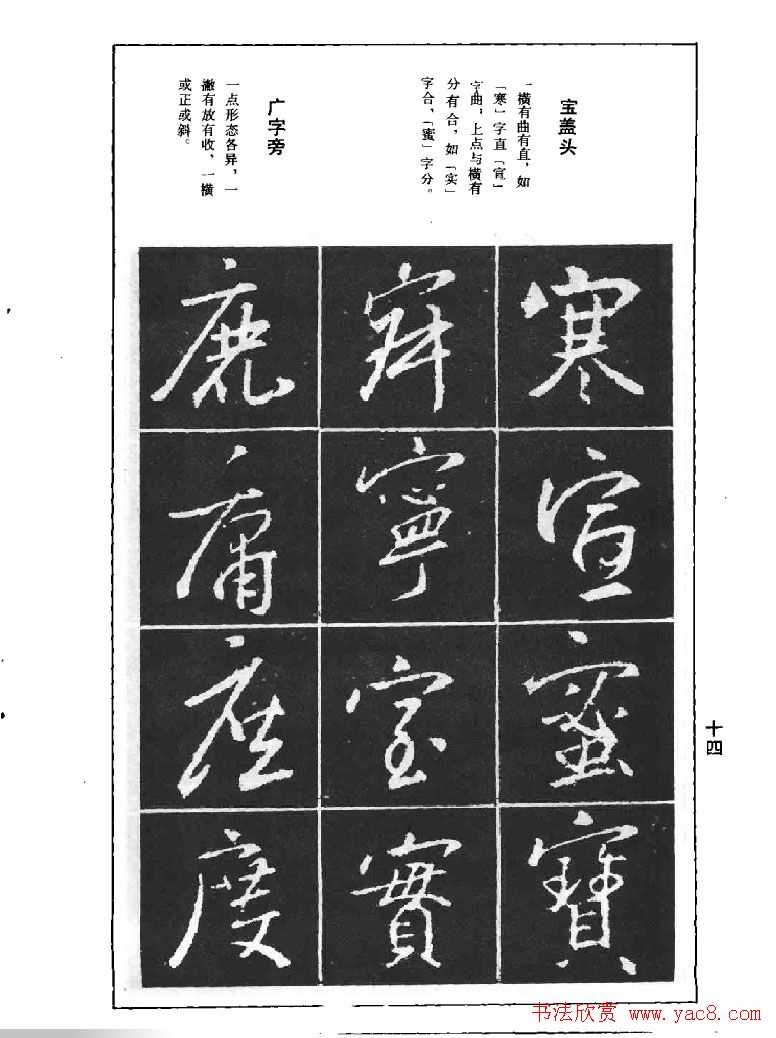 宝盖头
一横有曲有直，如
「寒」字直「宣」
字曲；上点与横有
分有合，如「实」
字合，「蜜」字分。
广字旁
一点形态各异，一
撇有放有收，一横
或正或斜。
寒
宣
蜜
寶
寧
室
實
鹿
庸
座
度
十四
书法欣赏 www.yac8.com